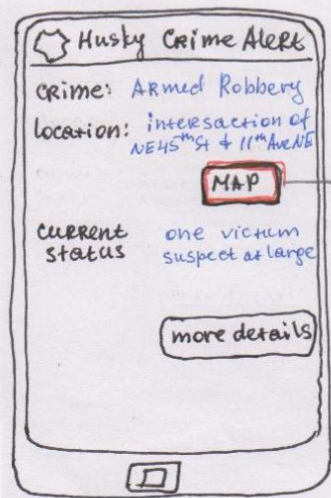 Husky Crime Alert
Crime: Armed Robbery
Location: intersaction of
NE45th St & 11th Ave NE
MAP
Current one victum
status suspect at large
more details